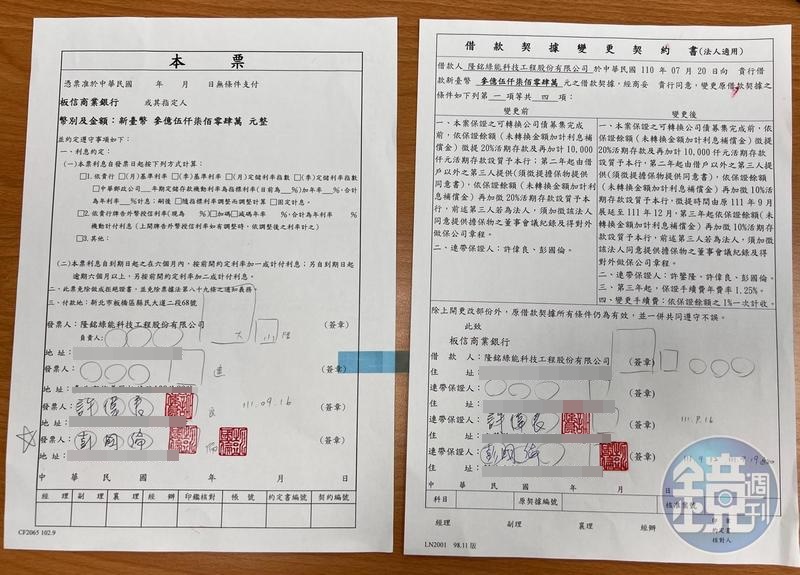 本票
憑票准於中華民國 年 月 日無條件支付
板信商業銀行 或其指定人
幣別及金額：新臺幣 參億伍仟柒佰零肆萬 元整
並約定遵守事項如下：
一、利息約定：
(一)本票利息自發票日起按下列方式計算：
□1.依貴行 □(月)基準利率 □(季)基準利率 □(月)定儲利率指數 □(季)定儲利率指數
□中華郵政公司__年期定儲存款機動利率為指標利率(目前為__%)加年率__%，合計
為年利率__%計息；嗣後 □隨指標利率調整而調整計算 □固定計息。
□2.依貴行牌告外幣授信利率(現為 %)□加碼□減碼年率 %，合計為年利率 %
機動計付利息(上開牌告外幣授信利率如有調整時，依調整後之利率計之)
□3.其他：
(二)本票利息自到期日起之在六個月內，按前開約定利率加一成計付利息；另自到期日起
逾期六個月以上，另按前開約定利率加二成計付利息。
二、此票免除做成拒絕證書，並免除票據法第八十九條之通知義務。
三、付款地：新北市板橋區縣民大道二段68號
發票人：隆銘綠能科技工程股份有限公司 (簽章)
負責人：
地 址：
發票人： (簽章)
地 址：
發票人：許偉良 111.09.16 (簽章)
地 址：
發票人：彭國倫 (簽章)
地 址：
中 華 民 國 年 月 日
經 理 副 理 襄 理 經 辦 印鑑核對 帳 號 約定書編號 契約編號
CF2065 102.9
借款契據變更契約書(法人適用)
借款人 隆銘綠能科技工程股份有限公司 於中華民國 110 年 07 月 20 日向 貴行借
款新臺幣 參億伍仟柒佰零肆萬 元之借款契據，經商妥 貴行同意，變更原借款契據之
條件如下列第 一 項等共 四 項：
變更前
一、本案保證之可轉換公司債募集完成前，
依保證餘額(未轉換金額加計利息補
償金)徵提20%活期存款及再加計10,000
仟元活期存款設質予本行；第二年起由借
戶以外之第三人提供(須徵提擔保物提供
同意書)，依保證餘額(未轉換金額加計利
息補償金)再加徵20%活期存款設質予本
行，前述第三人若為法人，須加徵該法人
同意提供擔保物之董事會議紀錄及得對外
做保公司章程。
二、連帶保證人：許偉良、彭國倫。
變更後
一、本案保證之可轉換公司債募集完成前，
依保證餘額(未轉換金額加計利息補償
金)徵提20%活期存款及再加計10,000仟元
活期存款設質予本行；第二年起由借戶以外
之第三人提供(須徵提擔保物提供同意書)，
依保證餘額(未轉換金額加計利息補償金)
再加徵10%活期存款，徵提時間由原 111 年 9 月
展延至 111 年 12 月，第三年起依保證餘額(未
轉換金額加計利息補償金)再加徵 10%活期存款
設質予本行，前述第三人若為法人，須加徵
該法人同意提供擔保物之董事會議紀錄及得
對外做保公司章程。
二、連帶保證人：許鑒隆、許偉良、彭國倫。
三、第三年起，保證手續費年費率 1.25%。
四、變更手續費：依保證餘額之 1%一次計收。
除上開更改部份外，原借款契據所有條件仍為有效，並一併共同遵守不誤。
此致
板信商業銀行
借 款 人：隆銘綠能科技工程股份有限公司 (簽章)
住 址：
連帶保證人： (簽章)
住 址：
連帶保證人：許偉良 (簽章) 111.9.16
住 址：
連帶保證人：彭國倫 (簽章)
住 址：
中 華 民 國 年 月 日
科目 原契據編號 核准案號
經理 副理 襄理 經辦
印鑑及約定書核對人
LN2001 98.11 版
鏡週刊